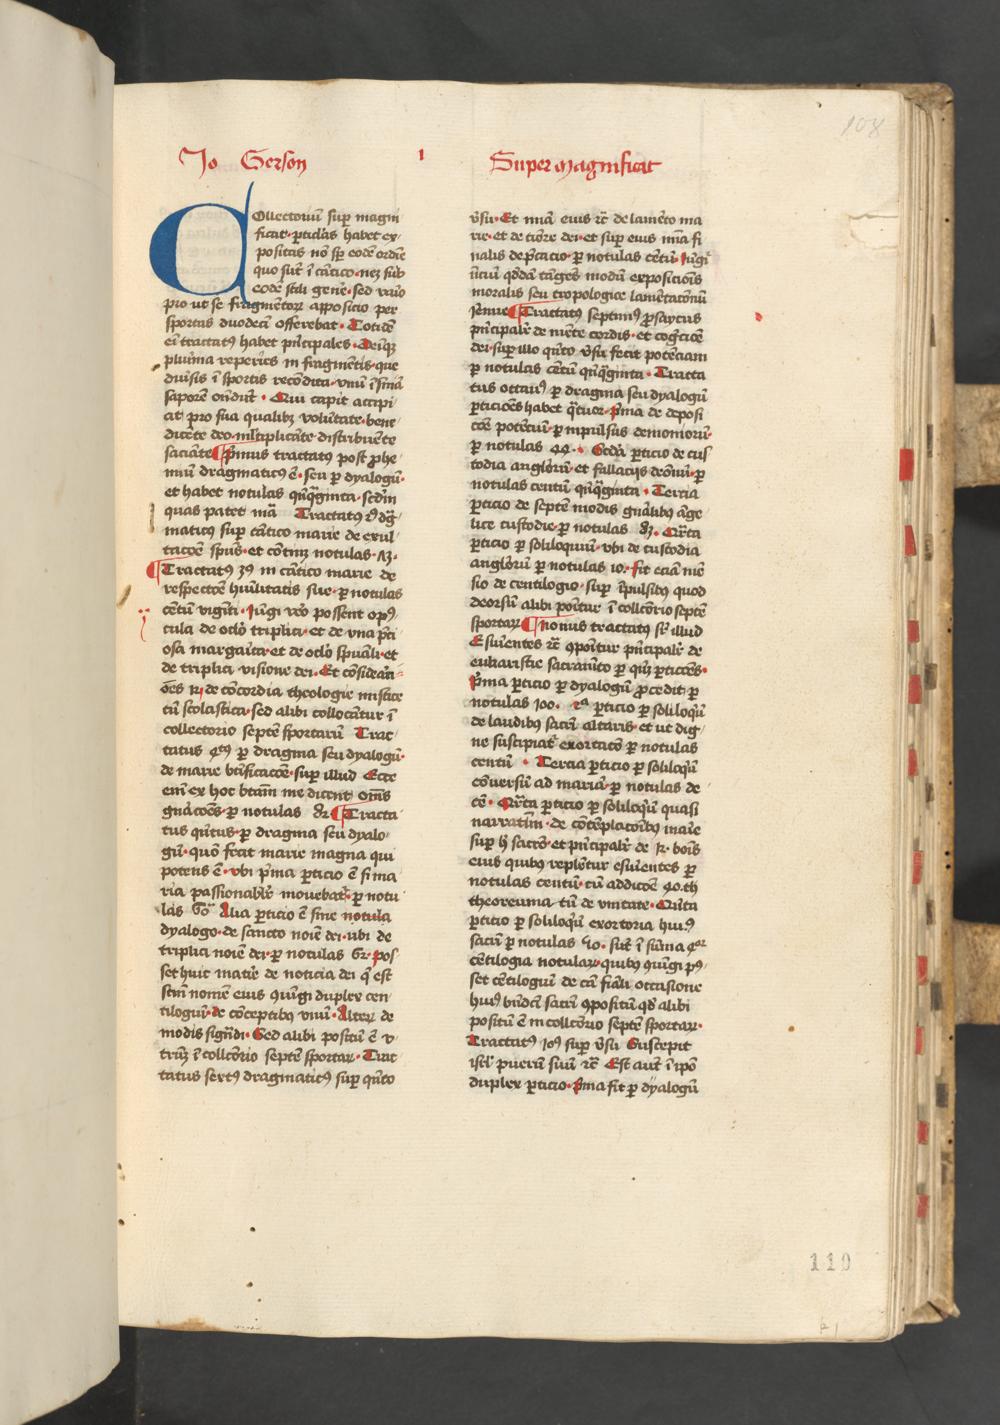 108
Jo Gerson 1 Super Magnificat
Collectoriū suꝑ magni
ficat · ꝑticl̄as habet ex
positas nō sꝑ eodē ordīe
quo sūt ī cātico · neqꝫ sub
eodē stili genē · sed vaīo
pro ut se fragmentoꝝ apposicio per
sportas duodecī offerebat · Totidē
eī tractatꝰ habet pͥncipales · Deīqꝫ
plurīma reperies in fragmētis · que
diuīsis ī sportis recōdita · vnū īsimul
saporē ondūt · Qui capit accipi
at pro sua qualibꝫ volūtate · bene
dicēte deo · mltiplicāte · distribuēte
saciāte ¶ Pͥmus tractatus post ꝓhe
miū dragmaticꝰ ē · seu ꝑ dyalogū ·
et habet notulas qͥnqͣginta · sedm̄
quas patet mā Tractatꝰ 2ꝰ dͣg
maticꝰ suꝑ cātico marie de exul
tacōe spūs · et cōtinꝫ notulas ·
¶ Tractatꝰ 3ꝰ in cātico marie de
respectōe hūilitatis sue · ꝑ notulas
cētū viginti · Jūgi vero possent opꝰ
cula de oclo triplici · et de vna pͥci
osa margarita · et de oclo spūali · et
de triplici visione dei · Et cōsideraci
ōes de cōcordia theologie mistice
cū scolastica · sed alibi collocātur ī
collectorio septē sportarū Trac
tatus 4tꝰ ꝑ dragma seu dyalogū ·
de marie btīficacōe · suꝑ illud Ecce
enī ex hoc btām me dicent om̄s
gn̄acōes · ꝑ notulas 82 ¶ Tracta
tus qͥntus · ꝑ dragma seu dyalo
gū · quō fecit marie magna qui
potens ē · vbi pͥma ꝑticio ē si ma
ria passionabilr̄ mouebat · ꝑ notu
las Alia ꝑticio ē sine notula
dyalogo · de sancto noīe dei · vbi de
triplici noīe dei · ꝑ notulas 62 · pos
set huic materie de noticia dei qͥ est
scīm nomē eius qͥungi duplex cen
tiloguū · de cōceptibꝰ vnū · Alter de
modis signdi · Sed alibi positū ē v
trūqꝫ ī collcōrio septē sportaꝝ · Trac
tatus sextꝰ dragmaticꝰ suꝑ qͥnto
v̄su · Et mīa eius ꝛc̄ de lamēto ma
rie · et de tīore dei · et suꝑ eius mīa fi
nalis dep̄cacio · ꝑ notulas cētū · Jūgit̄
vnū qddā tāges modū exposicōis
moralis seu tropologice lamētacōnū
jemie ¶ Tractatꝰ septimꝰ ꝓsaycus
pͥncipalr̄ de mēte cordis · et cogͥcōe
dei · suꝑ illo qͥnto v̄su fecit potēciam
ꝑ notulas cētū qͥnqͣginta · Tracta
tus octauꝰ ꝑ dragma seu dyalogū
ꝑticiōes habet qͣtuor · pͥma de deposi
cōe potētū · ꝑ inpulsus demoniorū ·
ꝑ notulas 44 · Scd̄a ꝑticio de cus
todia angłorū · et fallacijs deōnū · ꝑ
notulas centū qͥnqͣginta · Tercia
ꝑticio de septē modis gnalibꝰ āge
lice custodie · ꝑ notulas 82 · Qͣrta
ꝑticio ꝑ soliloquiū · vbi de custodia
angłorū ꝑ notulas 10 · fit eciā mē
sio de centilogio · suꝑ īpulsibꝰ quod
deorsū alibi ponitur ī collcōrio septē
sportaꝝ ¶ Nonus tractatꝰ sꝑ illud
Esurientes ꝛc̄ ꝯponitur pͥncipalr̄ de
eukaristie sacramēto ꝑ qͥnqꝫ ꝑticōes ·
Pͥma ꝑticio ꝑ dyalogū ꝓcedit ꝑ
notulas 100 · 2ͣ ꝑticio ꝑ soliloqͥū
de laudibꝰ sacrī altaris · et ut dig
ne suscipiat̄ exortacō ꝑ notulas
centū · Tercia ꝑticio ꝑ soliloqͥū
cōuersiū ad mariā · ꝑ notulas de
cē · Qͣrta ꝑticio ꝑ soliloqͥū quasi
narratīm · de cōtēplacōibꝰ marie
suꝑ h̄ sacrō · et pͥncipalr̄ de bōīs
eius quibꝰ replētur esuriētes ꝑ
notulas centū · cū addicōe 40 · th
theoreuma · tū de vnitate · Qͥnta
ꝑticio ꝑ soliloqͥū exortoria huiꝰ
sacrī ꝑ notulas 50 · sūt ī sūma 4or
cētilogia notulaꝝ · quibꝰ qͥungi pꝰ
set cētilogiū de cā finali occasione
huiꝰ būdcī sacrī ꝯpositū qd̄ alibi
positū ē in collcōrio septē sportaꝝ ·
Tractatꝰ 10ꝰ suꝑ v̄su Suscepit
isrl̄ puerū suū ꝛc̄ Est aūt ī ipō
duplex ꝑticio · pͥma fit ꝑ dyalogū
110